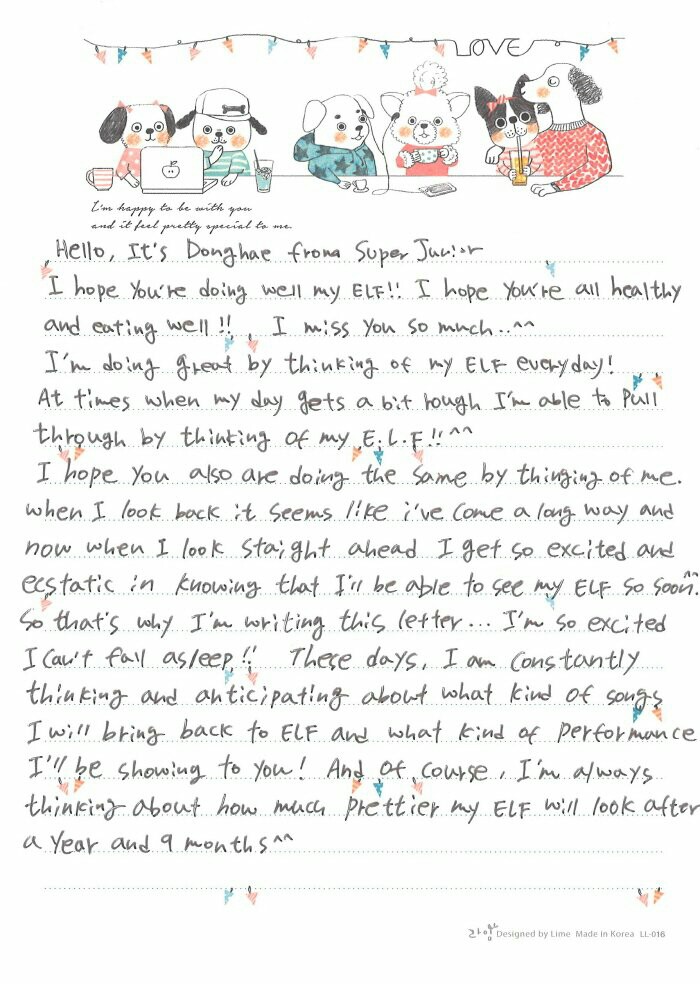 LOVE
I'm happy to be with you
and it feel pretty special to me.
Hello, It's Donghae from Super Junior
I hope You're doing well my ELF!! I hope You're all healthy
and eating well!! I miss You so much..^^
I'm doing great by thinking of my ELF everyday!
At times when my day gets a bit rough I'm able to pull
through by thinking of my E.L.F!!^^
I hope You also are doing the same by thinging of me.
when I look back it seems like i've come a long way and
now when I look staight ahead I get so excited and
ecstatic in knowing that I'll be able to see my ELF so soon^^.
So that's why I'm writing this letter... I'm so excited
I can't fall asleep!! These days, I am constantly
thinking and anticipating about what kind of songs
I will bring back to ELF and what kind of performance
I'll be showing to you! And of course, I'm always
thinking about how much prettier my ELF will look after
a year and 9 months^^
라임 Designed by Lime Made In Korea LL-016